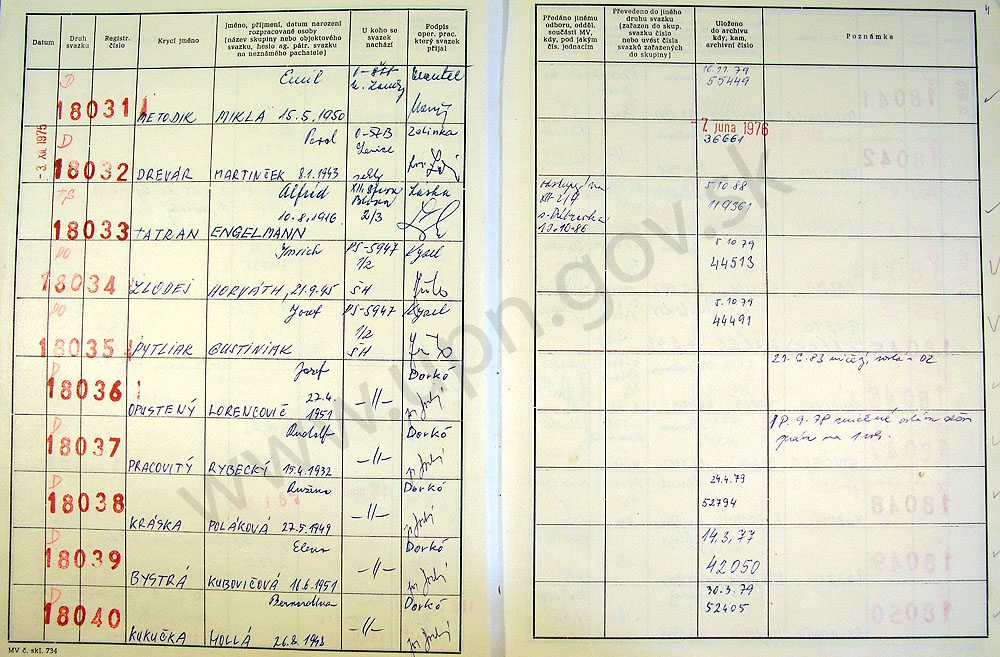 Datum
Druh svazku
Registr. číslo
Krycí jméno
Jméno, příjmení, datum narození rozpracované osoby (název skupiny nebo objektového svazku, heslo ag. pátr. svazku na neznámého pachatele)
U koho se svazek nachází
Podpis oper. prac. který svazek přijal
Předáno jinému odboru, odděl. součásti MV, kdy, pod jakým čís. jednacím
Převedeno do jiného druhu svazku (zařazen do skup. svazku číslo nebo uvést čísla svazků zařazených do skupiny)
Uloženo do archivu kdy, kam, archivní číslo
Poznámka
4
-3. XII. 1975
D
18031
METODIK
Emil
MIKLA 15.5.1950
16.11.79
55449
D
18032
DREVÁR
Pavol
MARTINČEK 8.1.1943
Zelinka
-7. júna 1976
36661
18033
TATRAN
Alfréd
10.8.1916
ENGELMANN
2/3
Laska
10.10.86
5.10.88
119361
PO
18034
ZLODEJ
Imrich
HORVÁTH, 21.9.45
PS-5947
1/2
ŠH
Kysel
5.10.79
44513
PO
18035
PYTLIAK
Jozef
GUSTINIAK
PS-5947
1/2
ŠH
Kysel
5.10.79
44491
D
18036
OPUSTENÝ
Jozef
27.4.
LORENCOVIČ 1951
-//-
Dorkó
21.6.83 02
D
18037
PRACOVITÝ
Rudolf
RYBECKÝ 15.4.1932
-//-
Dorkó
18.9.78
na 1 rok.
D
18038
KRÁSKA
Ružena
POLÁKOVÁ 27.5.1949
-//-
Dorkó
24.4.79
52794
D
18039
BYSTRÁ
Elena
KUBOVIČOVÁ 11.6.1951
-//-
Dorkó
14.3.77
42050
D
18040
KUKUČKA
Bernardína
HOLLÁ 26.8.1948
-//-
Dorkó
30.3.79
52405
MV č. skl. 734
www.upn.gov.sk